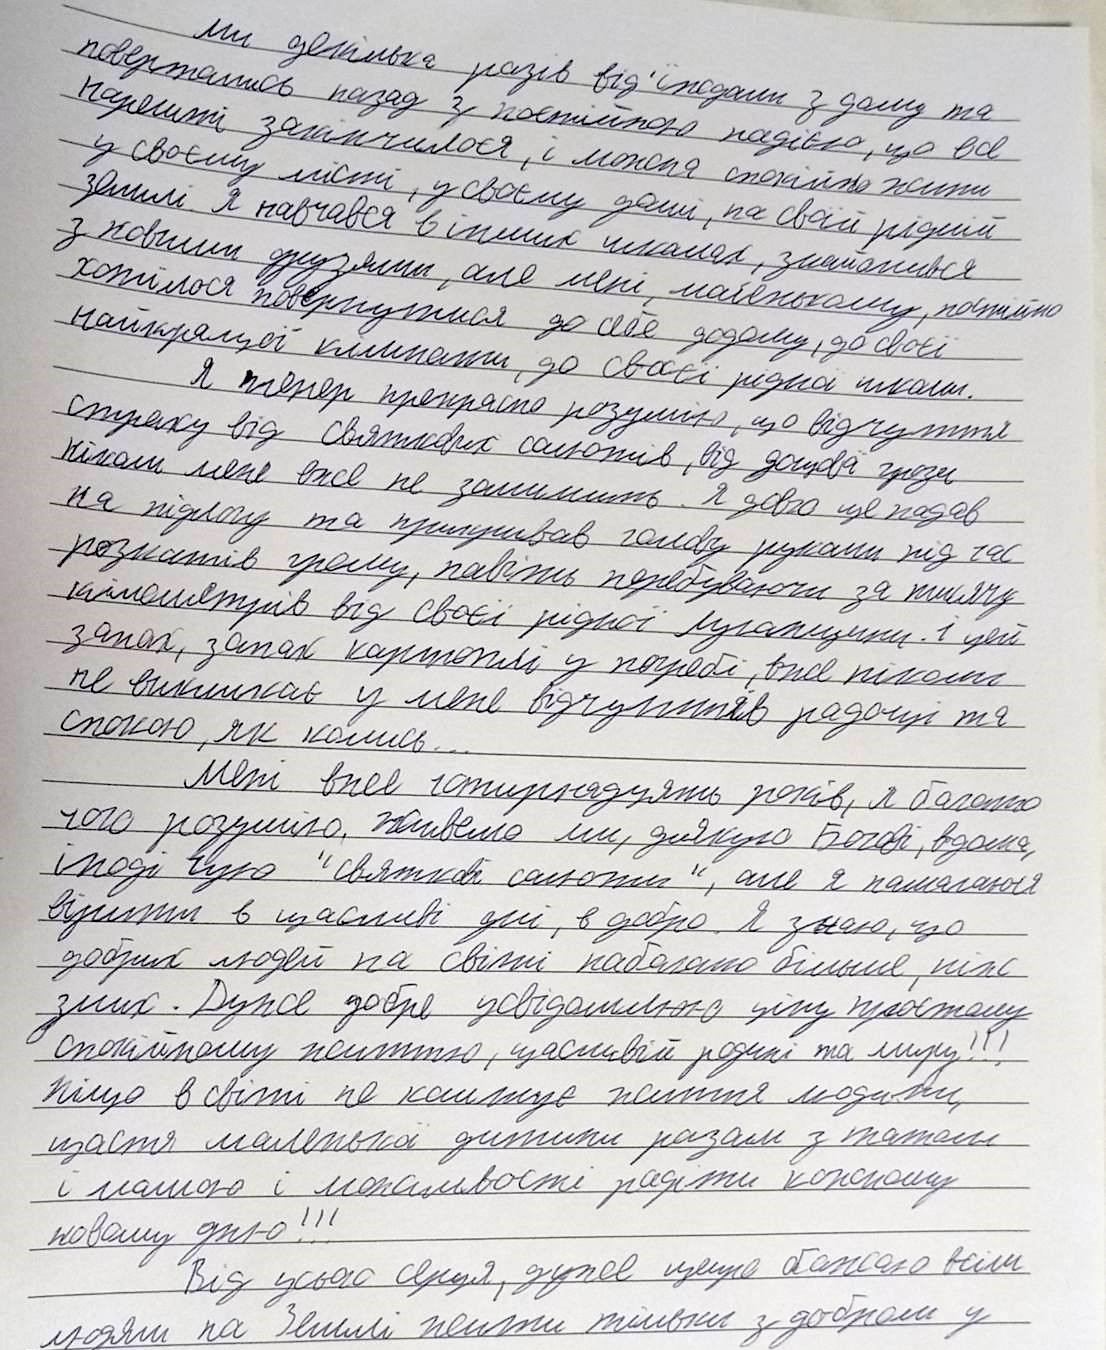 Ми декілька разів від'їжджали з дому та
повертались назад з постійною надією, що все
нарешті закінчилося, і можна спокійно жити
у своєму місті, у своєму домі, на своїй рідній
землі. Я навчався в інших школах, знайомився
з новими друзями, але мені, маленькому, постійно
хотілося повернутися до себе додому, до своєї
найкращої кімнати, до своєї рідної школи.
Я тепер прекрасно розумію, що відчуття
страху від святкових салютів, від дощової грози
ніколи мене вже не залишить. Я довго ще падав
на підлогу та прикривав голову руками під час
розкатів грому, навіть перебуваючи за тисячу
кілометрів від своєї рідної Луганщини. І цей
запах, запах картоплі у погребі, вже ніколи
не викликає у мене відчуттів радощі та
спокою, як колись...
Мені вже чотирнадцять років, я багато
чого розумію, живемо ми, дякую Богові, вдома,
іноді чую "святкові салюти", але я намагаюся
вірити в щасливі дні, в добро. Я знаю, що
добрих людей на світі набагато більше, ніж
злих. Дуже добре усвідомлюю ціну простому
спокійному життю, щасливій родині та миру!!!
Ніщо в світі не коштує життя людини,
щастя маленької дитини разом з татом
і мамою і можливості радіти кожному
новому дню!!!
Від усього серця, дуже щиро бажаю всім
людям на Землі жити тільки з добром у